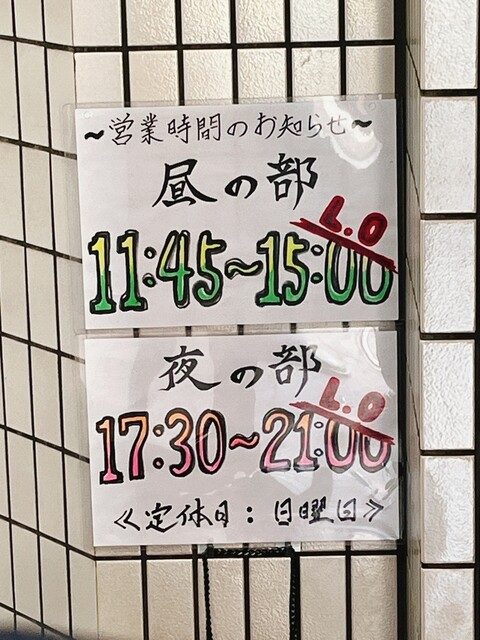 ~営業時間のお知らせ~
昼の部
L.O
11:45~15:00
夜の部
L.O
17:30~21:00
≪定休日:日曜日≫